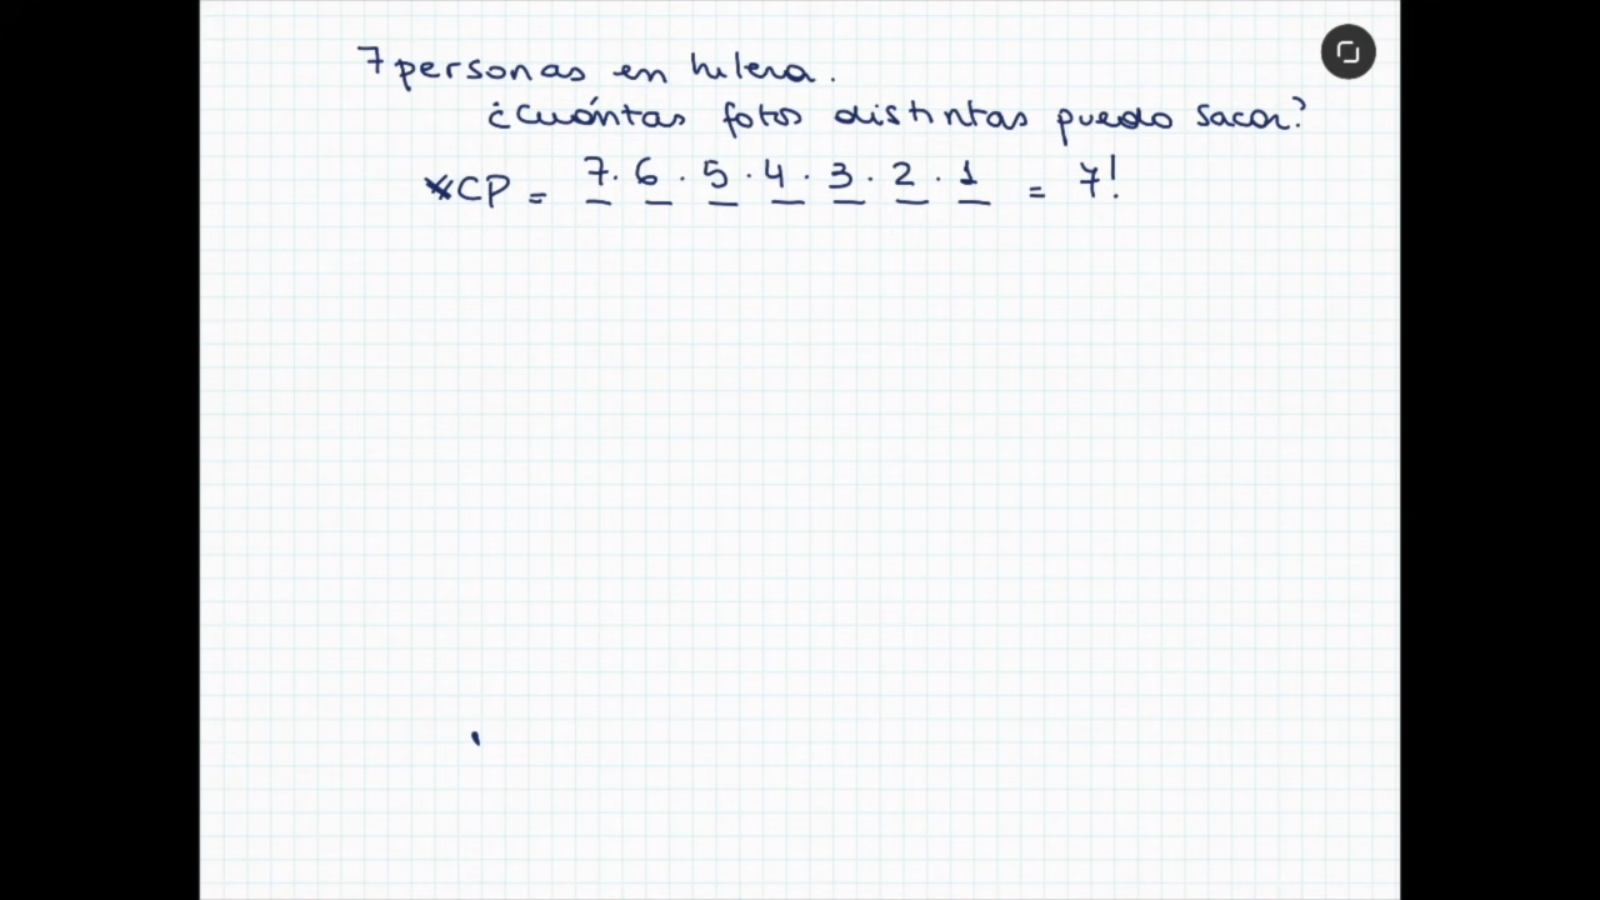 7 personas en hilera.
¿Cuántas fotos distintas puedo sacar?
CP = 7 . 6 . 5 . 4 . 3 . 2 . 1 = 7!